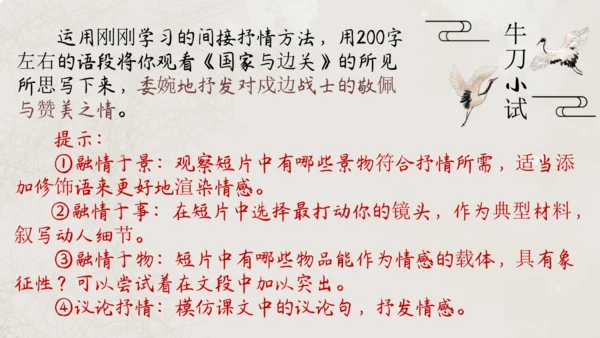 运用刚刚学习的间接抒情方法，用200字
左右的语段将你观看《国家与边关》的所见
所思写下来，委婉地抒发对戍边战士的敬佩
与赞美之情。
提示：
①融情于景：观察短片中有哪些景物符合抒情所需，适当添
加修饰语来更好地渲染情感。
②融情于事：在短片中选择最打动你的镜头，作为典型材料，
叙写动人细节。
③融情于物：短片中有哪些物品能作为情感的载体，具有象
征性？可以尝试着在文段中加以突出。
④议论抒情：模仿课文中的议论句，抒发情感。
牛刀小试